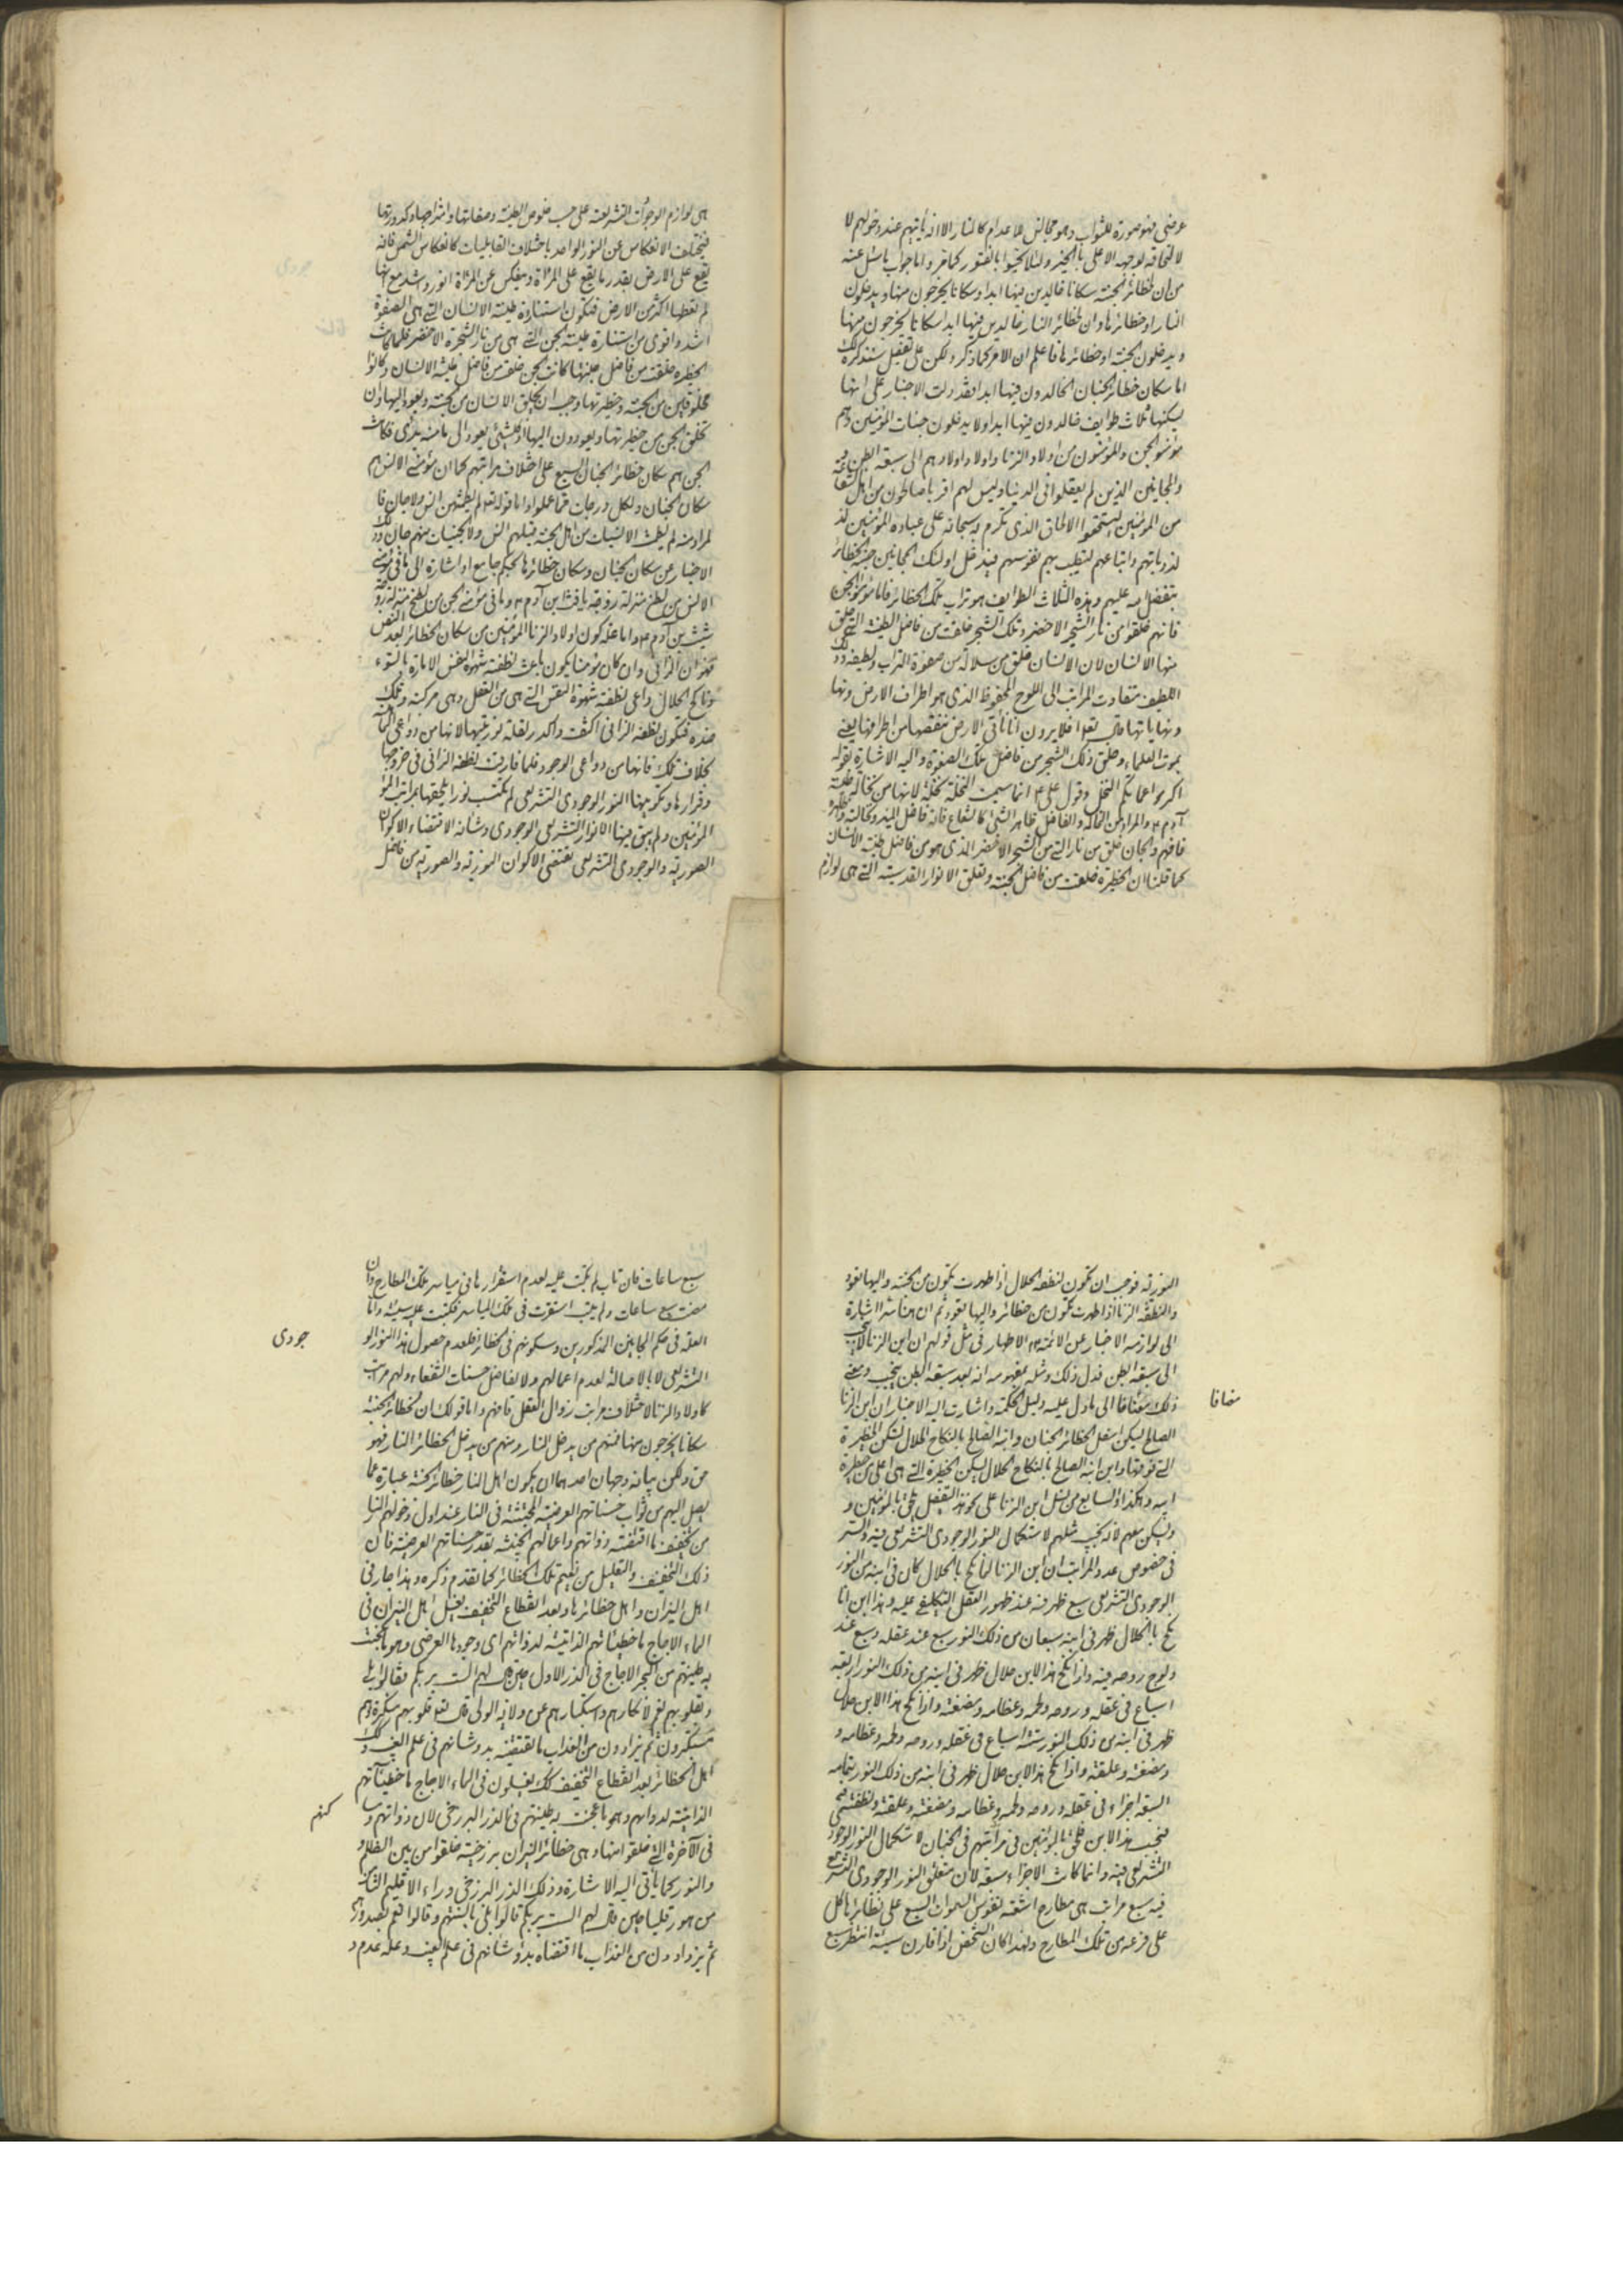 عرضی فهو صورة للثواب وهو مجالس للاعدام كالنار الا انه يأتيهم عند دخولهم لا
لالتحاقه لوجهه الاعلى بالخير ولئلا يحيوا بالفتور كما مر واما جواب ما سئل عنه
من ان لحظائر الجنة سكانا خالدين فيها ابدا وسكانا يخرجون منها ويدخلون
النار او حظائرها وان لحظائر النار خالدين فيها ابدا وسكانا يخرجون منها
ويدخلون الجنة او حظائرها فاعلم ان الامر كما ذكر ولكن على تفصيل سنذكره لك
اما سكان حظائر الجنان الخالدون فيها ابدا فقد دلت الاخبار على انها
يسكنها ثلاث طوايف خالدون فيها ابدا ولا يدخلون جنات المؤمنين وهم
مؤمنو الجن والمؤمنون من اولاد الزنا واولاد اولادهم الى سبعة ابطن
والمجانين الذين لم يعقلوا في الدنيا وليس لهم اقرباء صالحون من اهل الشفاعة
من المؤمنين ليستحقوا الالحاق الذي تكرم به سبحانه على عباده المؤمنين
لذرياتهم واتباعهم لتطيب بهم نفوسهم فيدخل اولئك المجانين جنة الحظائر
بتفضل منه عليهم وهذه الثلاث الطوايف هو تراب تلك الحظائر فاما مؤمنوا الجن
فانهم خلقوا من نار الشجر الاخضر وتلك الشجر خلقت من فاضل الطينة التي خلق
منها الانسان لان الانسان خلق من سلالة من صفوة التراب ولطيفه وذلك
اللطيف متفاوت المراتب الى اللوح المحفوظ الذي هو اطراف الارض ونها
ونهاياتها قال تعا افلا يرون انا نأتي الارض ننقصها من اطرافها يعني
بموت العلماء وخلق ذلك الشجر من فاضل تلك الصفوة واليه الاشارة بقوله
اكرموا عماتكم النخل وقول علي ع انما سميت النخلة نخلة لانها من نخالة طينة
آدم ع والمراد من النخالة والفاضل ظاهر الشئ كالشعاع فانه فاضل المنير ونخالته
فافهم والجان خلق من نار التي من الشجر الاخضر الذي هو من فاضل طينة الانسان
كما قلنا ان الحظيرة خلقت من فاضل الجنة وتعلق الانوار القدسية التي هي لوازم
هي لوازم الوجودات التشريعية على حسب خلوص الطينة وصفائها وامتزاجها وكدورتها
فيختلف الانعكاس عن النور الواحد باختلاف القابليات كانعكاس الشمس فانه
يقع على الارض بقدر ما يقع على المرآة وينعكس عن المرآة انور واشد مع انها
لم تعطها اكثر من الارض فتكون استنارة طينة الانسان التي هي الصفوة
اشد واقوى من استنارة طينة الجن التي هي من نار الشجرة الاخضر فلما كانت
الحظيرة خلقت من فاضل جنتها كانت الجن خلقت من فاضل طينة الانسان وكانوا
مخلوقين من الجنة وحظيرتها وجب ان يخلق الانسان من الجنة ويعود اليها وان
تخلق الجن من حظيرتها ويعودون اليها اذ كل شئ يعود الى ما منه بدئ فكانت
الجن هم سكان حظائر الجنان السبع على اختلاف مراتبهم كما ان مؤمني الانس هم
سكان الجنان ولكل درجات مما عملوا واما قوله تع لم يطمثهن انس ولا جان فا
لمراد منه لم يطمث الانسيات من اهل الجنة قبلهم انس ولا الجنيات منهم جان
الاخبار عن سكان الجنان وسكان حظائرها بحكم جامع او اشارة الى
الانس من لطخ منزلة زوجة يافث ابن آدم ع وما في مؤمني الجن من لطخ منزلة زوجة
شيث بن آدم ع واما علة كون اولاد الزنا المؤمنين من سكان الحظائر بعد النص
فهو ان الزاني وان كان مؤمنا يكون باعث نطفته شهوة النفس الامارة بالسوء
وناكح الحلال داعي نطفته شهوة النفس التي هي من العقل وهي مركبه وتلك
ضده فتكون نطفة الزاني اكثف واكدر لقلة نوريتها لانها من دواعي الماهية
بخلاف تلك فانها من دواعي الوجود فلما فارقت نطفة الزاني في خروجها
وقرارها وتكونها النور الوجودي التشريعي لم تكتسب نورا يلحقها بمراتب المؤ
المؤمنين ولم يبق فيها الا النور التشريعي الوجودي وشانه الاقتضاء الاكوان
الصورية والوجودي التشريعي يقتضي الاكوان النورية والصورية من فاضل
النورية فوجب ان تكون نطفة الحلال اذا طهرت تكون من الجنة واليها تعود
والنطفة الزنا اذا طهرت تكون من حظائر واليها تعود ثم ان هنا سرا اشارة
الى لوازمه الاخبار عن الائمة ع الاطهار في مثل قولهم ان ابن الزنا لا ينجب
الى سبعة ابطن فدل ذلك ومثله بمفهومه انه بعد سبعة ابطن ينجب ومعنى
ذلك مضافا الى ما دل عليه دليل الحكمة واشارت اليه الاخبار ان ابن الزنا
الصالح يسكن اسفل الحظائر الجنان وابنه الصالح بالنكاح الحلال يسكن الحظيرة
التي فوقها وابن ابنه الصالح بالنكاح الحلال يسكن الحظيرة التي هي اعلى من حظيرة
ابيه وهكذا والسابع من نسل ابن الزنا على نحو هذا التفصيل يلحق بالمؤمنين و
ويسكن معهم لانه نجيب مثلهم لاستكمال النور الوجودي التشريعي فيه والسر
في خصوص عدد المراتب ان ابن الزنا لما نكح بالحلال كان في ابنه من النور
الوجودي التشريعي سبع ظهر منه عند ظهور العقل التكليفي عليه وهذا ابن اذا
نكح بالحلال ظهر في ابنه سبعان من ذلك النور سبع عند عقله وسبع عند
ولوج روحه فيه واذا نكح هذا الابن حلال ظهر في ابنه من ذلك النور اربعة
اسباع في عقله وروحه ولحمه وعظامه ومضغته واذا نكح هذا الابن حلال
ظهر في ابنه من ذلك النور ستة اسباع في عقله وروحه ولحمه وعظامه و
ومضغته وعلقته واذا نكح هذا الابن حلال ظهر في ابنه من ذلك النور بتمامه
السبعة اجزاء في عقله وروحه ولحمه وعظامه ومضغته وعلقته ونطفته
فينجب هذا الابن فيلحق بالمؤمنين في مراتبهم في الجنان لاستكمال النور الوجود
التشريعي فيه وانما كانت الاجزاء سبعة لان متعلق النور الوجودي التشريعي
فيه سبع مراتب هي مطارح اشعة نفوس السموات السبع على نظائرها كل
على فرعه من تلك المطارح ولهذا كان الشخص اذا قارن سيئة انتظر سبع
مضافا
سبع ساعات فان تاب لم يكتب عليه لعدم استقرارها في مياسر تلك المطارح وان
مضت سبع ساعات ولم يتب استقرت في تلك المياسر فكتبت عليه سيئة واما
العلة في حكم المجانين المذكورين وسكونهم في الحظائر فلعدم حصول هذا النور الو
جودى
التشريعي لا بالاصالة لعدم اعمالهم ولا بفاضل حسنات الشفعاء ولهم مراتب
كاولاد الزنا لاختلاف مراتب زوال العقل فافهم واما قولك ان لحظائر الجنة
سكانا يخرجون منها فمنهم من يدخل النار ومنهم من يدخل الحظائر النار فهو
حق ولكن بيانه وجهان احدهما ان يكون اهل النار حظائر الجنة عبارة عما
يصل اليهم من ثواب حسناتهم العرضية المجتثة في النار عند اول دخولهم النار
من تخفيف ما اقتضته ذواتهم واعمالهم الخبيثة بقدر حسناتهم العرضية فان
ذلك التخفيف والتقليل من نعيم تلك الحظائر كما تقدم ذكره وهذا جار في
اهل النيران واهل حظائرها وبعد انقطاع التخفيف يغسل اهل النيران في
الماء الاجاج ما خطيئاتهم الذاتية لذواتهم اى وجودها العرضي وهو ما عجنت
به طينتهم من البحر الاجاج في الذر الاول حين قال لهم الست بربكم فقالوا بلى
وبقلوبهم نعم لانكارهم واستكبارهم عن ولاية الولي قال تع قلوبهم منكرة وهم
مستكبرون ثم يزدادون من العذاب ما تقتضيه بدو شانهم في علم الغيب وكذلك
اهل الحظائر بعد انقطاع التخفيف كك يغسلون في الماء الاجاج ما خطيئاتهم
الذاتية لذواتهم وهو ما عجنت به طينتهم في الذر البرزخي لان ذواتهم وسا
كنهم
في الآخرة التي خلقوا منها وهي حظائر النيران برزخية خلقوا من بين الظلمة و
والنور كما يأتي اليه الاشارة وذلك الذر البرزخي وراء الاقليم الثامن
من هورقليا حين قال لهم الست بربكم قالوا بلى بالسنتهم وقالوا نعم بصدورهم
ثم يزدادون من العذاب ما اقتضاه بدو شانهم في علم الغيب وعلة عدم و